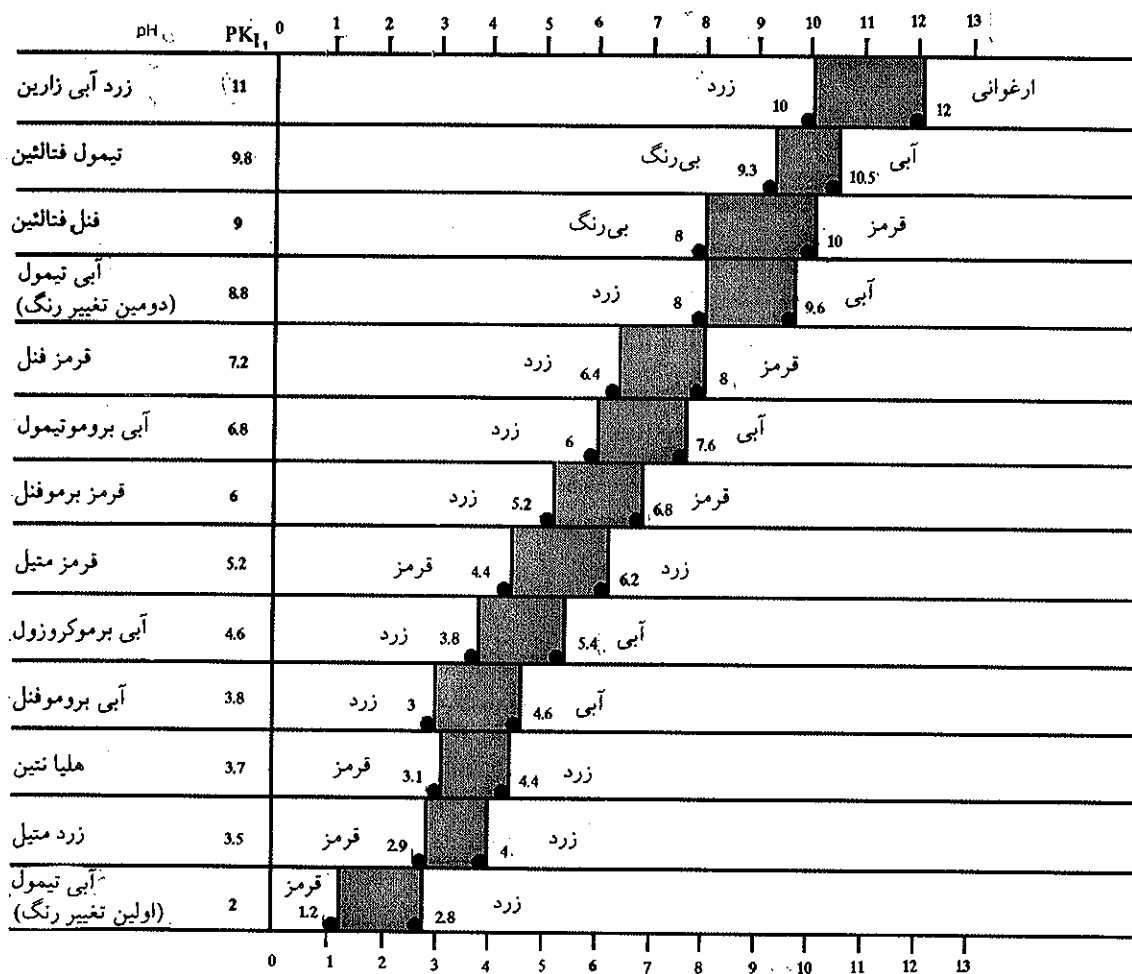 pH PKI 0 1 2 3 4 5 6 7 8 9 10 11 12 13
زرد آبی زارین 11 زرد 10 12 ارغوانی
تیمول فتالئین 9.8 بی‌رنگ 9.3 10.5 آبی
فنل فتالئین 9 بی‌رنگ 8 10 قرمز
آبی تیمول
(دومین تغییر رنگ) 8.8 زرد 8 9.6 آبی
قرمز فنل 7.2 زرد 6.4 8 قرمز
آبی بروموتیمول 6.8 زرد 6 7.6 آبی
قرمز برموفنل 6 زرد 5.2 6.8 قرمز
قرمز متیل 5.2 قرمز 4.4 6.2 زرد
آبی برموکروزول 4.6 زرد 3.8 5.4 آبی
آبی بروموفنل 3.8 زرد 3 4.6 آبی
هلیا نتین 3.7 قرمز 3.1 4.4 زرد
زرد متیل 3.5 قرمز 2.9 4 زرد
آبی تیمول
(اولین تغییر رنگ) 2 قرمز 1.2 2.8 زرد
0 1 2 3 4 5 6 7 8 9 10 11 12 13